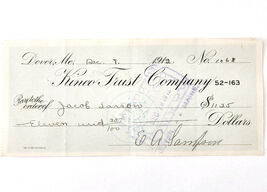 Dover, Me. Dec. 9, 1912 No. 1068
Kineo Trust Company 52-163
Pay to the order of Jacob $11.25
Eleven and 25/100 Dollars
E. A. Sampson